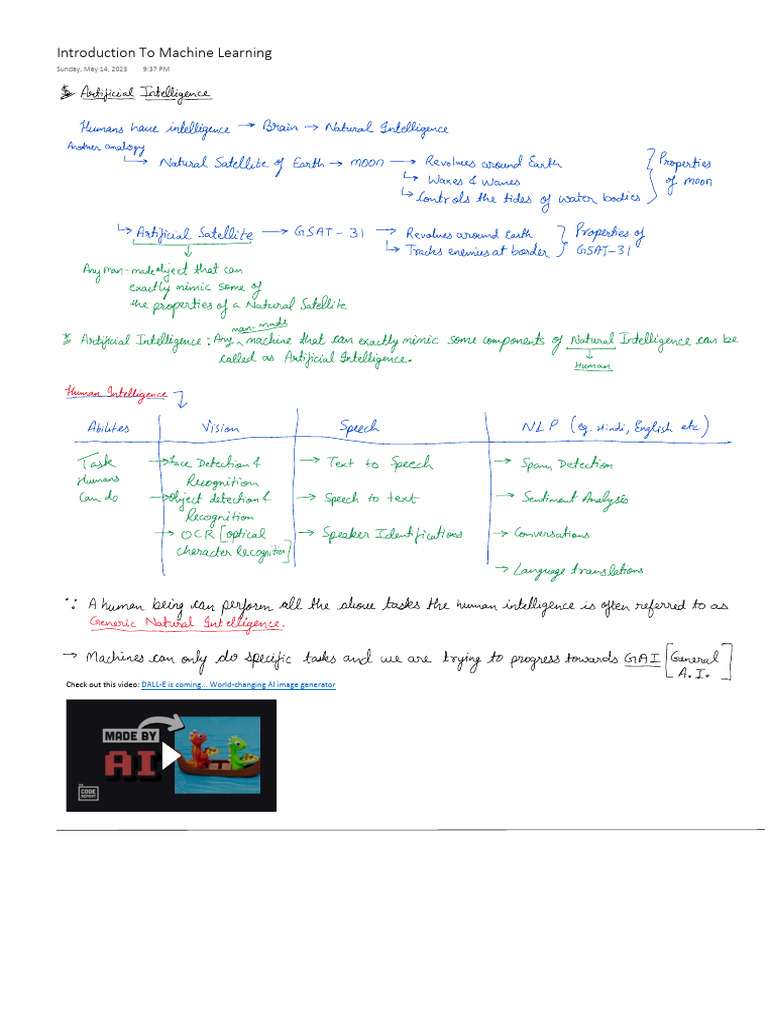 Introduction To Machine Learning
Sunday, May 14, 2023 9:37 PM
Artificial Intelligence
Humans have intelligence → Brain → Natural Intelligence
Another analogy
↳ Natural Satellite of Earth → moon → Revolves around Earth
↳ Waxes & Wanes
↳ Controls the tides of water bodies
Properties
of moon
↳ Artificial Satellite → GSAT-31 → Revolves around Earth
↳ Tracks enemies at border
Properties of
GSAT-31
Any man-made object that can
exactly mimic some of
the properties of a Natural Satellite
man-made
Artificial Intelligence: Any machine that can exactly mimic some components of Natural Intelligence can be
called as Artificial Intelligence.
Human
Human Intelligence
Abilites Vision Speech NLP (eg. Hindi, English etc)
Task → Face Detection & → Text to Speech → Spam Detection
Humans Recognition
Can do → Object detection & → Speech to text → Sentiment Analysis
Recognition
→ OCR [optical → Speaker Identifications → Conversations
character Recognition]
→ Language translations
∵ A human being can perform all the above tasks the human intelligence is often referred to as
Generic Natural Intelligence.
→ Machines can only do specific tasks and we are trying to progress towards GAI [General
A.I.]
Check out this video: DALL·E is coming... World-changing AI image generator
MADE BY
AI
THE
CODE
REPORT